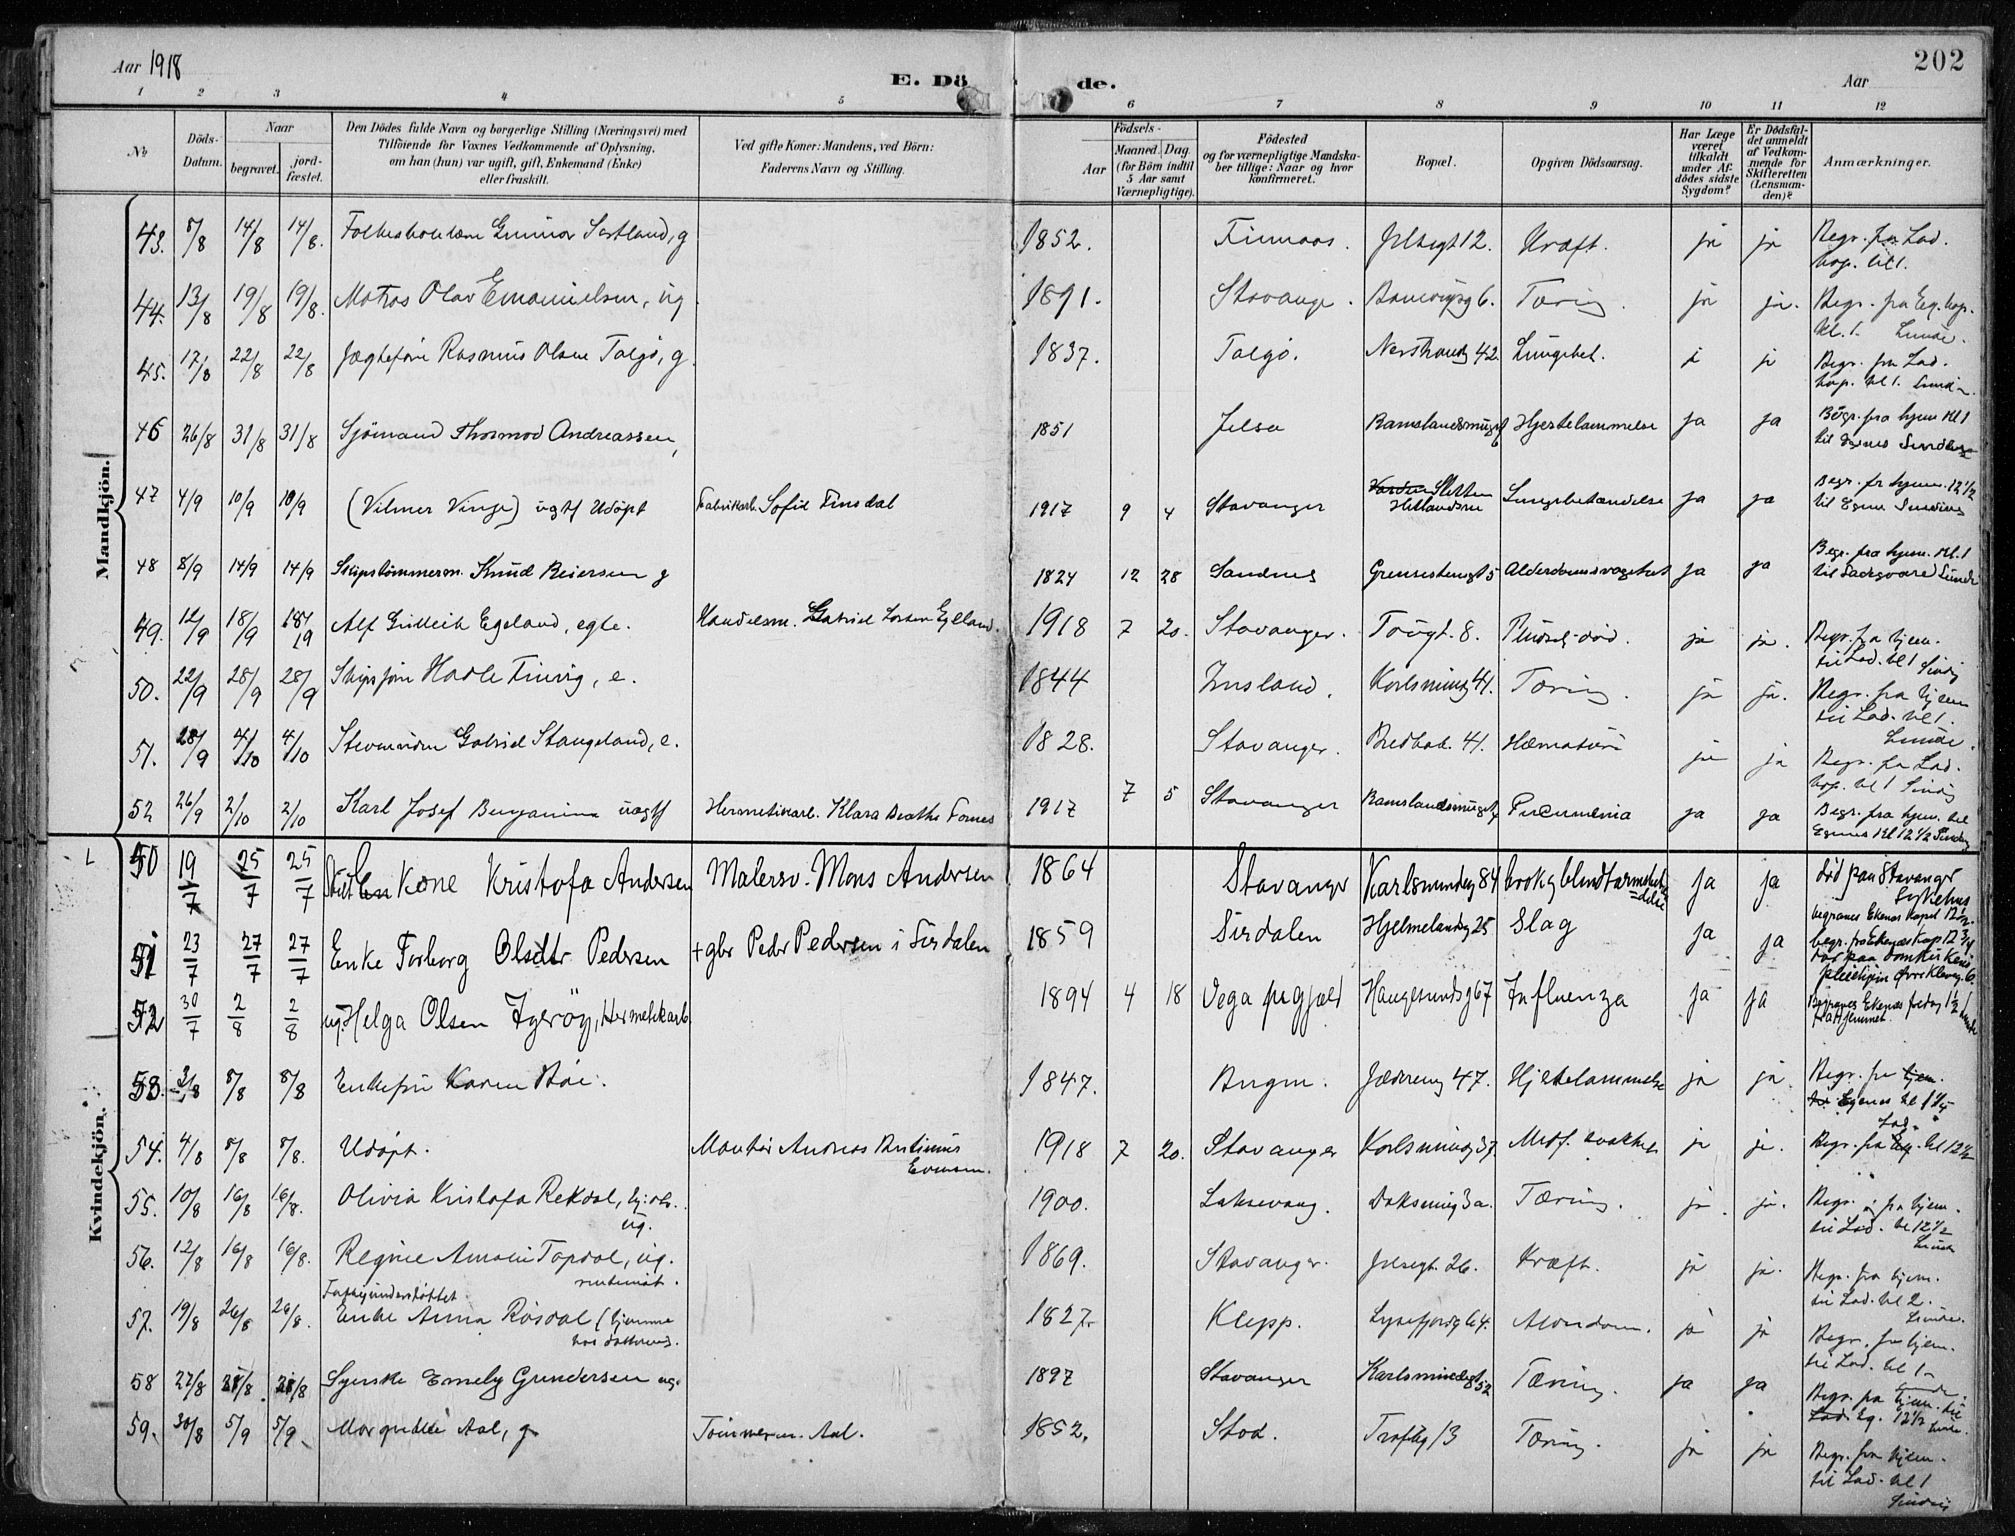 Aar 1918
E. Dö de.
Aar
202
1 2 3 4 5 6 7 8 9 10 11 12
№
Döds-Datum.
Naar
begravet.
jord-fæstet.
Den Dödes fulde Navn og borgerlige Stilling (Næringsvei) med
Tilföiende for Voxnes Vedkommende af Oplysning,
om han (hun) var ugift, gift, Enkemand (Enke)
eller fraskilt.
Ved gifte Koner: Mandens, ved Börn:
Faderens Navn og Stilling.
Födsels-
Aar
Maaned. Dag.
(for Börn indtil
5 Aar samt
Værnepligtige).
Födested
og for værnepligtige Mandska-
ber tillige: Naar og hvor
konfirmeret.
Bopæl.
Opgiven Dödsaarsag.
Har Læge
været
tilkaldt
under Af-
dödes sidste
Sygdom?
Er Dödsfal-
det anmeldt
af Vedkom-
mende for
Skifteretten
(Lensman-
den)?
Anmærkninger.
Mandkjön.
43. 8/8 14/8 14/8. Gunnar , g 1852. Finnaas. Jelsagt 12. Kræft. ja ja Begr. fra Lad.
kap. kl 1.
44. 13/8 19/8 19/8. Matros Olav Emanuelsen, ug 1891. Stavanger. 6. Tæring. ja ja. Begr. fra Eg. kap.
kl. 1. Lunde.
45. 17/8 22/8 22/8 Jægtefører Rasmus Olsen Talgø, g. 1837. Talgø. Nerstrandg 42. Lungebet. ja Begr. fra Lad.
kap. kl 1. Lunde
46 26/8 31/8 31/8 Sjømand Thormod Andreassen, 1851 Jelsa Ramslandsmuget 6 Hjertelammelse ja ja Begr. fra hjem. Kl 1
til Egenes
47 4/9 10/9 10/9 (Vilmer Vinje) uægtf Udøpt Fabrikarb. Sofie Finsdal 1917 9 4 Stavanger Lungebetændelse ja ja Begr. fr hjem. 12 1/2
til Egenes
48 8/9 14/9 14/9 Skipstømmerm. Knud Reiersen g 1824 12 28 Sandnes Grensestensgt 5 Alderdomssvaghet ja ja Begr. fra hjem. kl. 1
til Ladegaard Lunde
49. 12/9 18/9 18/9 Alf Gulleik Egeland, egte. Handelsm. Gabriel 1918 7 20. Stavanger. Taugt. 8. Pludselig død. ja ja. Begr. fra hjem.
til Lad. kl 1
50. 22/9 28/9 28/9 Skipsfører Hadle Tinvig, e. 1844 Imsland. Karlsminneg 41. Tæring. ja ja. Begr. fra hjem
til Lad. kl 1.
Lunde.
51. 28/9 4/10 4/10 Gabriel Stangeland, e. 1828. Stavanger. Bredbak. 41. Hæmaturi ja ja Begr. fra Lad.
kap. kl 1
52 26/9 2/10 2/10 Karl Josef Benjamin uægtf Hermetikarb. Klara Beathe Fornes 1917 7 5 Stavanger Ramslandsmuget Pneumonia ja ja Begr. fra hjem. til
Egenes Kl 12 1/2
Kvindekjön.
50 19/7 25/7 25/7 Kone Kristofa Andersen Malersv. Mons Andersen 1864 Stavanger Karlsmindeg 84 brok og blindtarmsbet-
ændelse ja ja død paa Stavanger
Sykehus
begraves Ekenæs Kapel
51 23/7 27/7 27/7 Enke Torborg Olsdtr Pedersen + gbr Peder Pedersen i Sirdalen 1859 Sirdalen Hjelmelandsg 25 Slag ja ja begr. fra Ekenæs Kap 12 3/4
død paa Domkirkens
pleiehjem Øvre Kleivg. 6.
52 30/7 2/8 2/8 ug. Helga Olsen Igerøy, Hermetikarb. 1894 4 18 Vega prgjeld Haugesundsg 67 Influenza ja ja Begraves Ekenæs fredag 1 1/2
fra Hjemmet.
53. 3/8 8/8 8/8 Enkefru Karen Bøe. 1847. Bergen. Jæderveg 47. Hjertelammelse ja ja. Begr. fra hjem.
til Egenes kl 1 1/4
54. 4/8 8/8 8/8. Udøpt. Montør Andreas Evensen. 1918 7 20. Stavanger Karlsminneg 37. Medf. svakhet ja ja. Begr. fra kl 12 1/2
55. 10/8 16/8 16/8. Olivia Kristofa Rekdal,
ug. 1900. Laksevaag. 3a. Tæring. ja. ja. Begr. fra hjem.
til Lad. kl 12 1/2
Lunde
56. 12/8 16/8 16/8. Regine Amalie Topdal, ug. 1869. Stavanger. Jelsagt. 26. Kræft. ja ja. Begr. fra hjem.
til Lad. kl 2.
Lunde.
57. 19/8 26/8 26/8. Fattigunderstøttet
Enke Anna Røsdal (hjemme
hos datteren). 1827. Klepp. Lysefjordg 64. Alderdom. ja ja Begr. fra hjem.
til Lad. kl 1
58 27/8 31/8 31/8 Synske Emely Gundersen ug. 1897 Stavanger Karlsmindegt 52 Tæring. ja ja Begr. fra hjem. til
Lad. Eg. 12 1/2
59. 30/8 5/9 5/9. Margrethe Aal, g. Tømmerm. Aal. 1852. Stod. 13 Tæring. ja ja Begr. fra hjem.
til Lad. kl 1